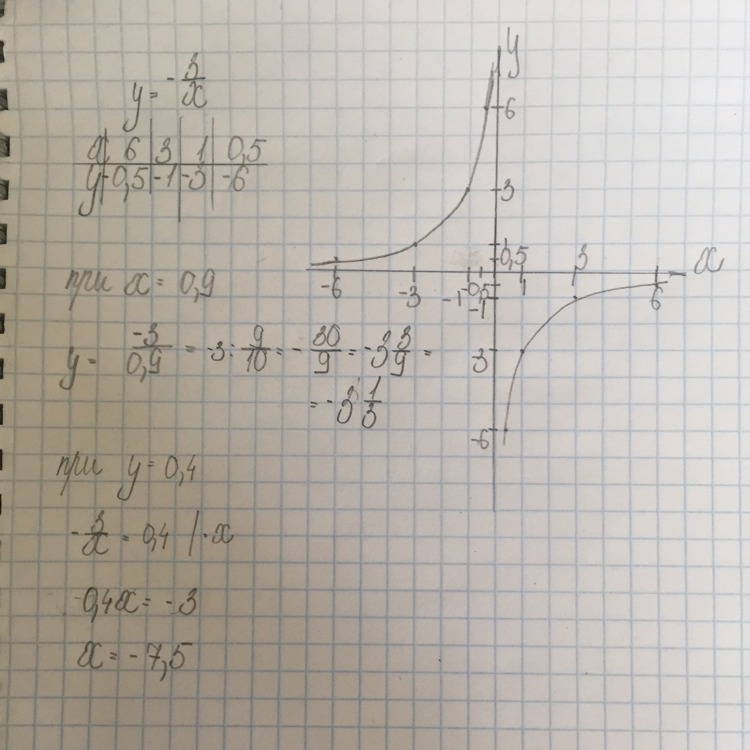 y = -3/x
x | 6 | 3 | 1 | 0,5
y | -0,5 | -1 | -3 | -6
при x = 0,9
y = -3/0,9 = -3 : 9/10 = - 30/9 = -3 3/9 =
= -3 1/3
при y = 0,4
-3/x = 0,4 | · x
0,4x = -3
x = -7,5
y
6
3
0,5
x
-6
-3
-1
-0,5
1
3
6
-1
3
-6